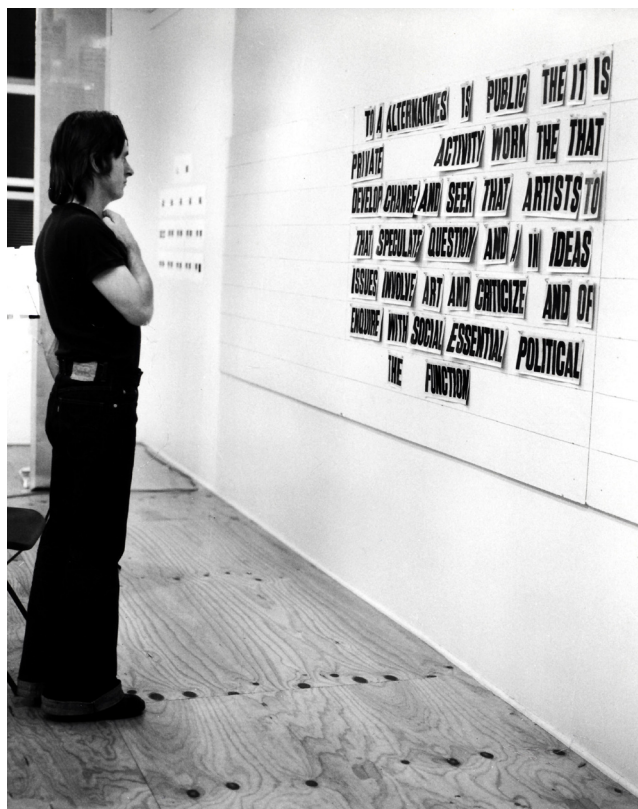 TO A ALTERNATIVES IS PUBLIC THE IT IS
PRIVATE ACTIVITY WORK THE THAT
DEVELOP CHANGE AND SEEK THAT ARTISTS TO
THAT SPECULATE QUESTION AND A IN IDEAS
ISSUES INVOLVE ART AND CRITICIZE AND OF
ENQUIRE WITH SOCIAL ESSENTIAL POLITICAL
THE FUNCTION